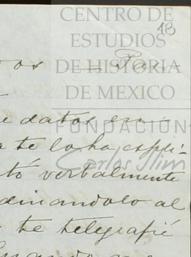 18
CENTRO DE
ESTUDIOS
DE HISTORIA
DE MEXICO
os
datos en
FUNDACIÓN
te lo ha espli-
Carlos Slim
tó verbalmente
dinandolo al
te telegrafié